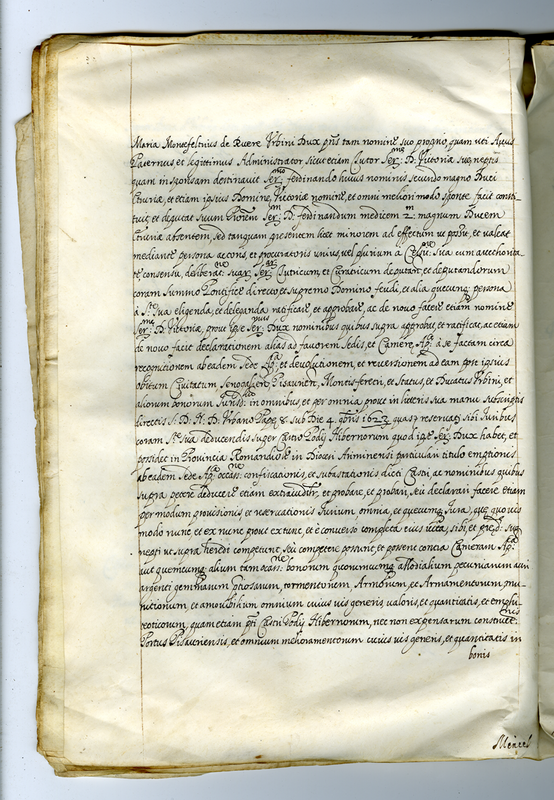 Maria Montefeltrius de Ruere Urbini Dux pns tam nomine suo proprio, quam uti Auus
Paternus et legittimus Administrator sicut etiam Tutor Ser:me D. Victoriæ suæ neptis
quam in sponsam destinauit Ser:mo ferdinando huius nominis secundo magno Duci
Etruriæ, et etiam ipsius Dominæ Victoriæ nomine, et omni meliori modo sponte facit consti-
tuit, et deputat suum Ser:m D. ferdinandum medicem 2:m magnum Ducem
Etruriæ absentem, sed tanquam præsentem licet minorem ad effectum ut possit, et ualeat
mediante persona ac cons, et procuratoris unius, uel plurium à sua cum authorita
te consensu, deliberat:ne suar: Ser: Tutricum, et Curatricum deputar: et deputandorum
coram Summo Pontifice directo, et supremo Domino feudi, et alia quacunq; persona
à S:te Sua eligenda, et deleganda ratificare, et approbare, ac de nouo facere etiam nomine
Ser:me D. Victoriæ, prout ipse Ser:mus Dux nominibus quibus supra approbat, et ratificat, ac etiam
de nouo facit declarationem aliàs ad fauorem Sedis, et Cameræ Ap:cæ à se factam circa
recognitionem ab eadem Sede Ap:ca et deuolutionem, et reuersionem ad eam post ipsius
obitum Ciuitatum Senogalien, Pisaurien, Montisferetri, et Status, et Ducatus Urbini, et
aliorum bonorum in omnibus, et per omnia prout in litteris sua manu subscriptis
directis S. D. N. D. Urbano Papæ 8. sub Die 4. 9bris 1623 quas reseruatis sibi Iuribus
coram S:te sua deducendis super Castro Podij Hibernorum quod ipse Ser: Dux habet, et
possidet in Prouincia Romandiolæ in Diocesi Ariminensi particulari titulo emptionis
ab eadem Sede Ap:ca occas:ne confiscationis, et subastationis dicti Castri, ac nominibus quibus
supra petere deducere etiam extraiudicialr, et probare, et probari, seu declarari facere etiam
per modum prouisionis et reseruationis Iurium omnia, et quæcunq; Iura, quæ quo uis
modo nunc et ex nunc prout ex tunc, et è conuerso completa eius uita, sibi, et præd: suæ
nepti ut supra heredi competunt, seu competere possunt, et possent contra Cameram Ap:cam
siue quemcunq; alium tam occas:ne bonorum quorumcunq; allodialium pecuniarum auri
argenti gemmarum prætiosarum, tormentorum Armorum, et Armamentorum mu-
nitionum, et amouibilium omnium cuius uis generis ualoris, et quantitatis, et emphi-
teoticorum, quam etiam pti Castri Podij Hibernorum, nec non expensarum
Portus Pisaurensis, et omnium melioramentorum cuius uis generis, et quantitatis in
bonis